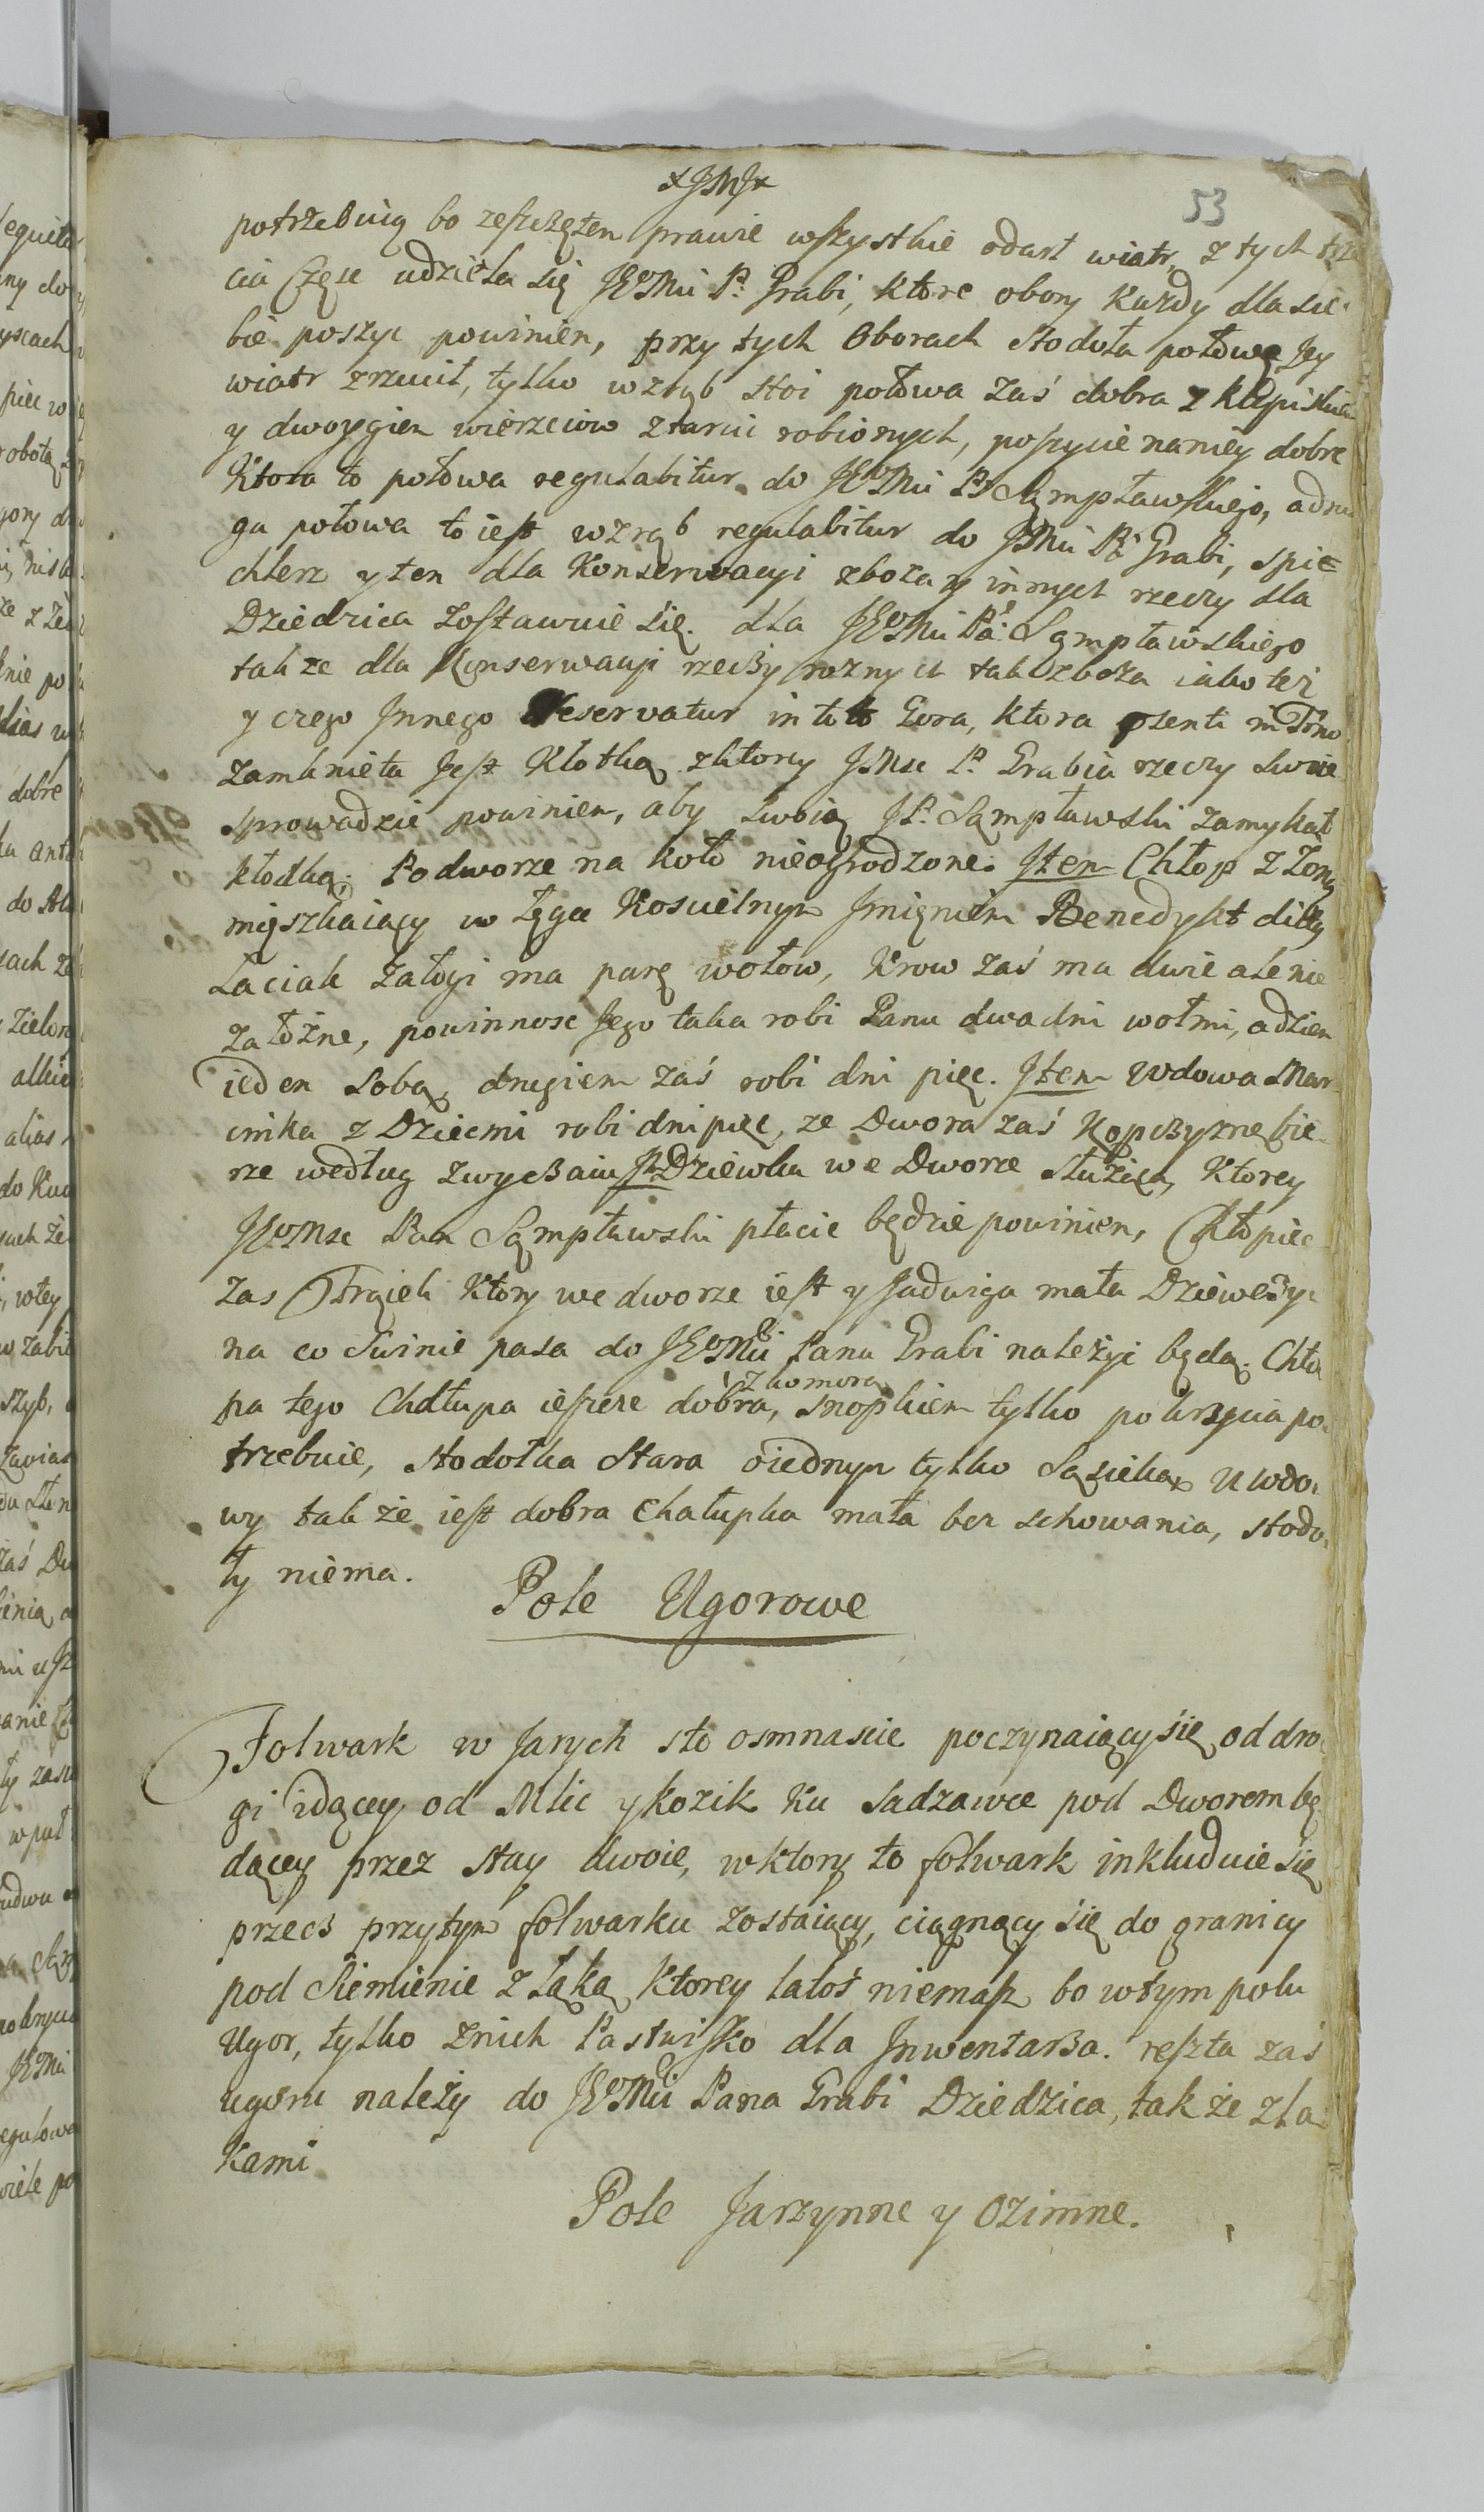 xJMJx
53
potrzebuią bo zeszczętem prawie wszystkie odart wiatr, z tych trze
cia Częsc udziela się JEoMu P: Grabi, ktore obory każdy dla sie¬
bie poszyc powinien, przy tych Oborach stodoła połowę Jey
wiatr zrzucił, tylko wzrąb stoi połowa zaś dobra z klepiskiem
y dwoygiem wierzeiow z tarcic robionych, poszycie na niey dobre
Ktora to połowa regulabitur do JEoMu P. Sąmpławskiego, a dru
ga połowa to iest wzrąb regulabitur do JMu Pa Grabi, spi=
chlerz y ten dla Konserwacyi zboża y innych rzeczy dla
Dziedzica zostawuie się. dla JEoMu Pa: Sąmpławskiego
takze dla Konserwacyi rzeczy roznych tak zboża iako też
y czego Jnnego Reservatur in toto Gora, ktora psenti in Trno
zamknieta Jest Klotką z ktorey JMsc P. Grabia rzeczy swoie
sprowadzic powinien, aby swoią JP. Sąmpławski zamykał
kłodką. Podworze na koło nieogrodzone. Jtem Chłop z Zoną
mięszkaiący w Łęgu Koscielnym Jmięniem Benedykt
Laciak Załogi ma parę wołow, Krow zaś ma dwie ale nie
założne, powinnosc Jego taka robi Panu dwa dni wołmi, a dzien
ieden sobą, drugiem zaś robi dni pięc. Jtem wdowa Mar
cinka z Dziecmi robi dni pięc, ze Dwora zaś Kopczyznę bie¬
rze według zwyczaiu Jt Dziewka we Dworze służąca, Ktorey
JEoMsc Pan Sąmpławski płacic będzie powinien, Chłopiec
zas Frąick Ktory we dworze iest y Jadwiga mała Dziewczy¬
na co swinie pasa do JEoMu Pana Grabi należyc będą. Chło
pa tego Chałupa ieszcze dobra, z komorą snopkiem tylko pokrycia po¬
trzebuie, stodołka stara o iednym tylko Sąsieku, u wdo¬
wy tak że iest dobra Chałupka mała bez schowania, stodo¬
ły niema.
Pole Ugorowe
Folwark w Jarych sto osmnascie poczynaiący się od dro
gi idącey od Mlic y kozik ku sadzawce pod Dworem bę
dącey przez stay dwoie, w ktory to folwark inkluduie się
przecz przytym folwarku zostaiący, ciągnący się do granicy
pod Siemienie z Łąką Ktorey latoś niemasz bo w tym polu
Ugor, tylko znich Pastwisko dla Jnwentarza. reszta zaś
ugoru należy do JEoMu Pana Grabi Dziedzica, tak że z łą
kami
Pole Jarzynne y Ozimne.